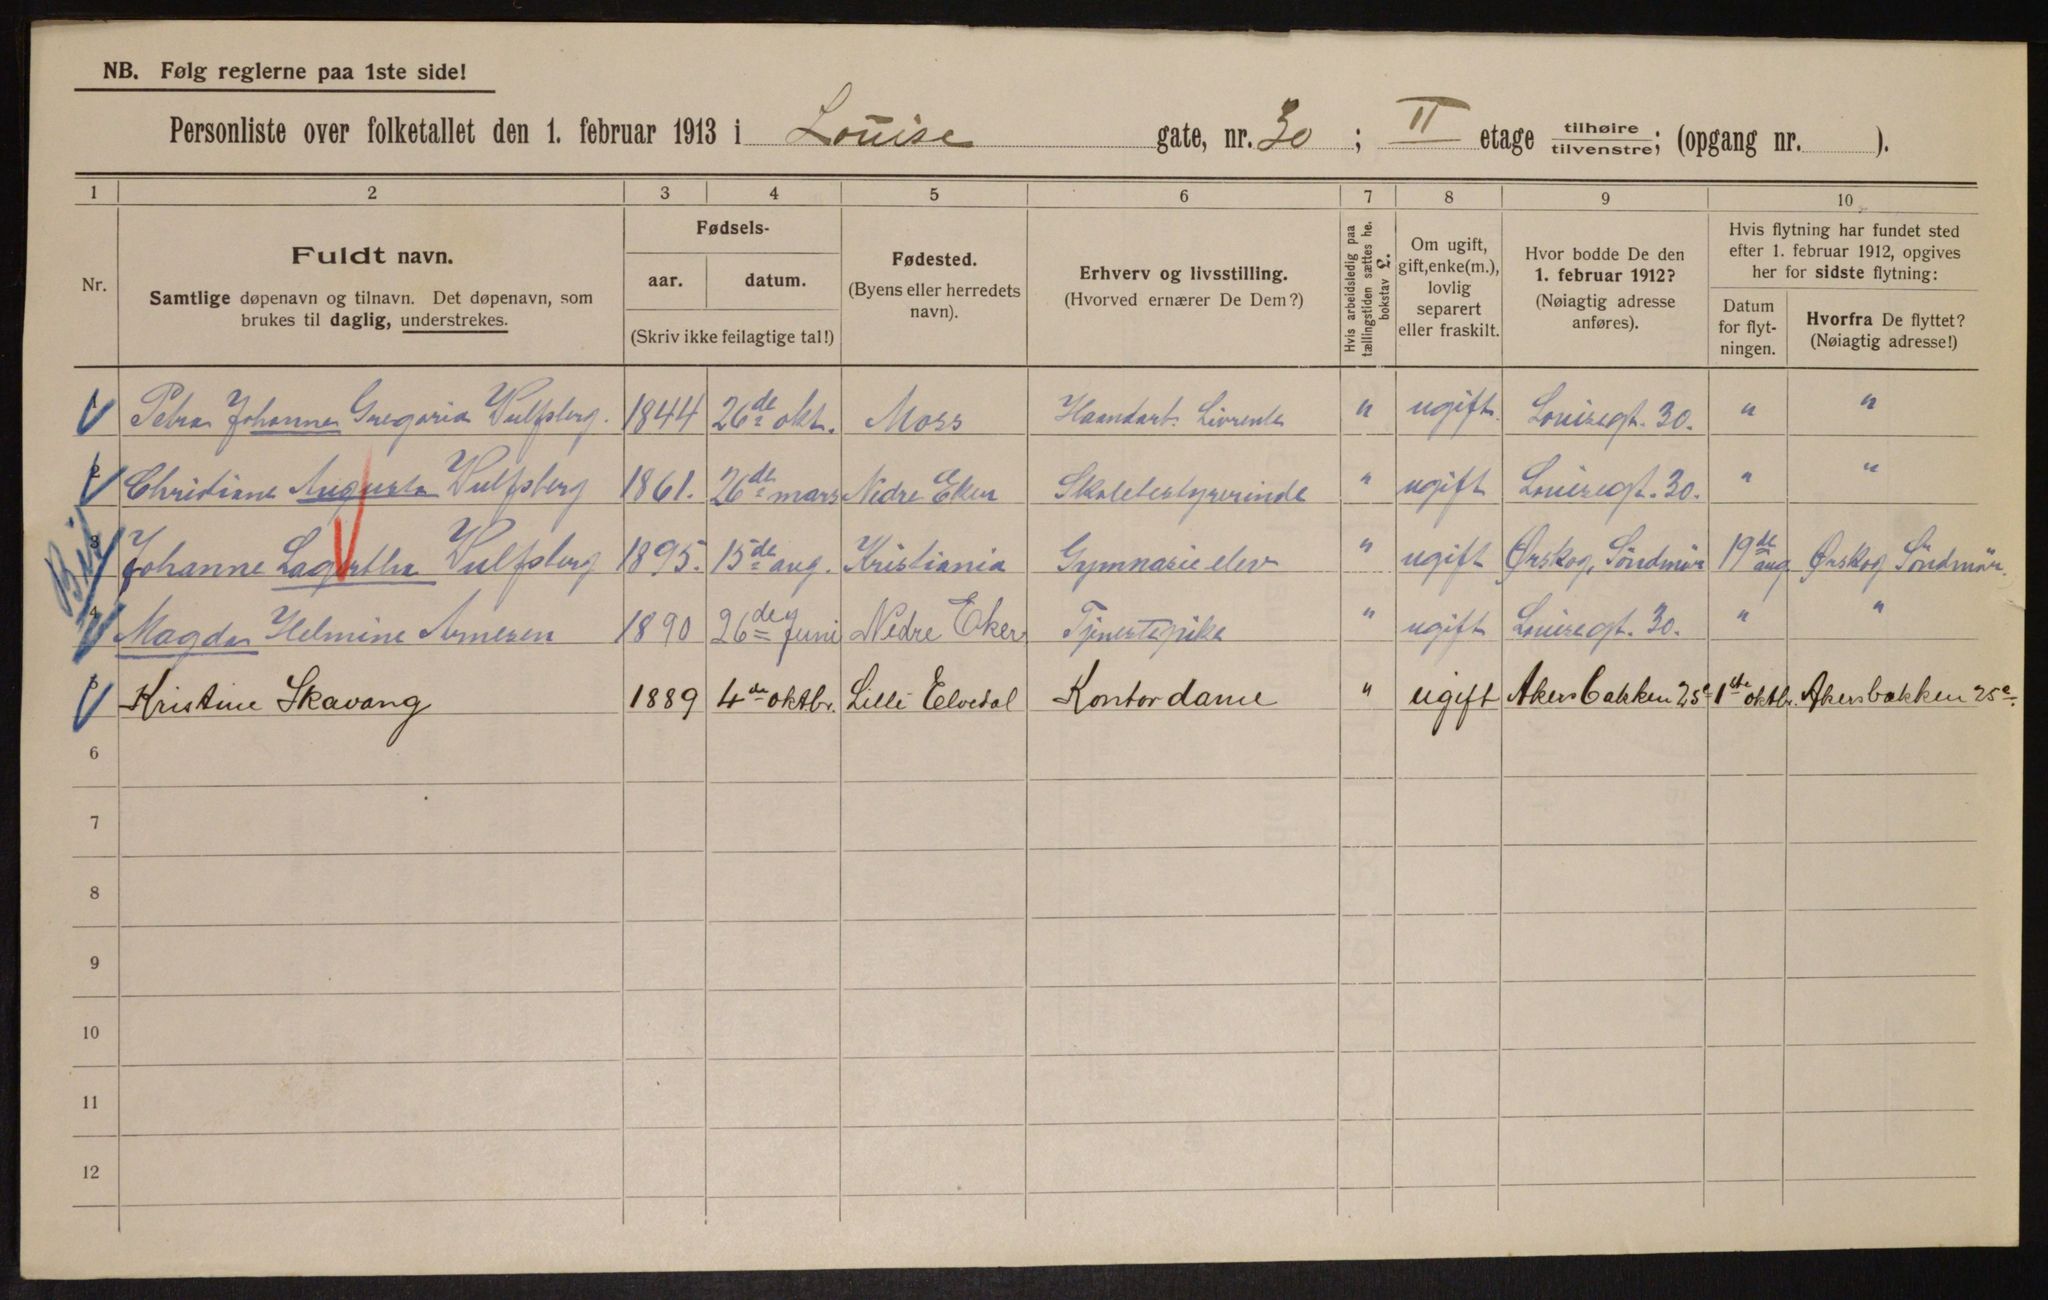 NB. Følg reglerne paa 1ste side!
Personliste over folketallet den 1. februar 1913 i Louise gate, nr. 30 ; II etage tilhøire tilvenstre; (opgang nr. ).
1 2 3 4 5 6 7 8 9 10
Nr.
Fuldt navn.
Samtlige døpenavn og tilnavn. Det døpenavn, som
brukes til daglig, understrekes.
Fødsels-
aar. datum.
(Skriv ikke feilagtige tal!)
Fødested.
(Byens eller herredets
navn).
Erhverv og livsstilling.
(Hvorved ernærer De Dem?)
Hvis arbeidsledig paa
tællingstiden sættes he.
bokstav L.
Om ugift,
gift, enke(m.),
lovlig
separert
eller fraskilt.
Hvor bodde De den
1. februar 1912?
(Nøiagtig adresse
anføres).
Hvis flytning har fundet sted
efter 1. februar 1912, opgives
her for sidste flytning:
Datum
for flyt-
ningen.
Hvorfra De flyttet?
(Nøiagtig adresse!)
1 Petra Johanne Gregoria Wulfsberg. 1844 26de okt. Moss Haandarb. Livrente " ugift. Louisegt. 30. " "
2 Christiane Augusta Wulfsberg 1861. 26de mars Nedre Eker Skolebestyrerinde " ugift Louisegt. 30. " "
3 Johanne Lagertha Wulfsberg 1895. 15de aug. Kristiania Gymnasieelev " ugift Ørskog, Söndmör 19de aug Ørskog Söndmör.
4 Magda Helmine Arnesen 1890 26de Juni Nedre Eker Tjenestepike " ugift Louisegt. 30. " "
5 Kristine Skavang 1889 4de oktbr. Lille Elvedal Kontordame " ugift Akersbakken 25c 1ste oktbr. Akersbakken 25c.
6
7
8
9
10
11
12